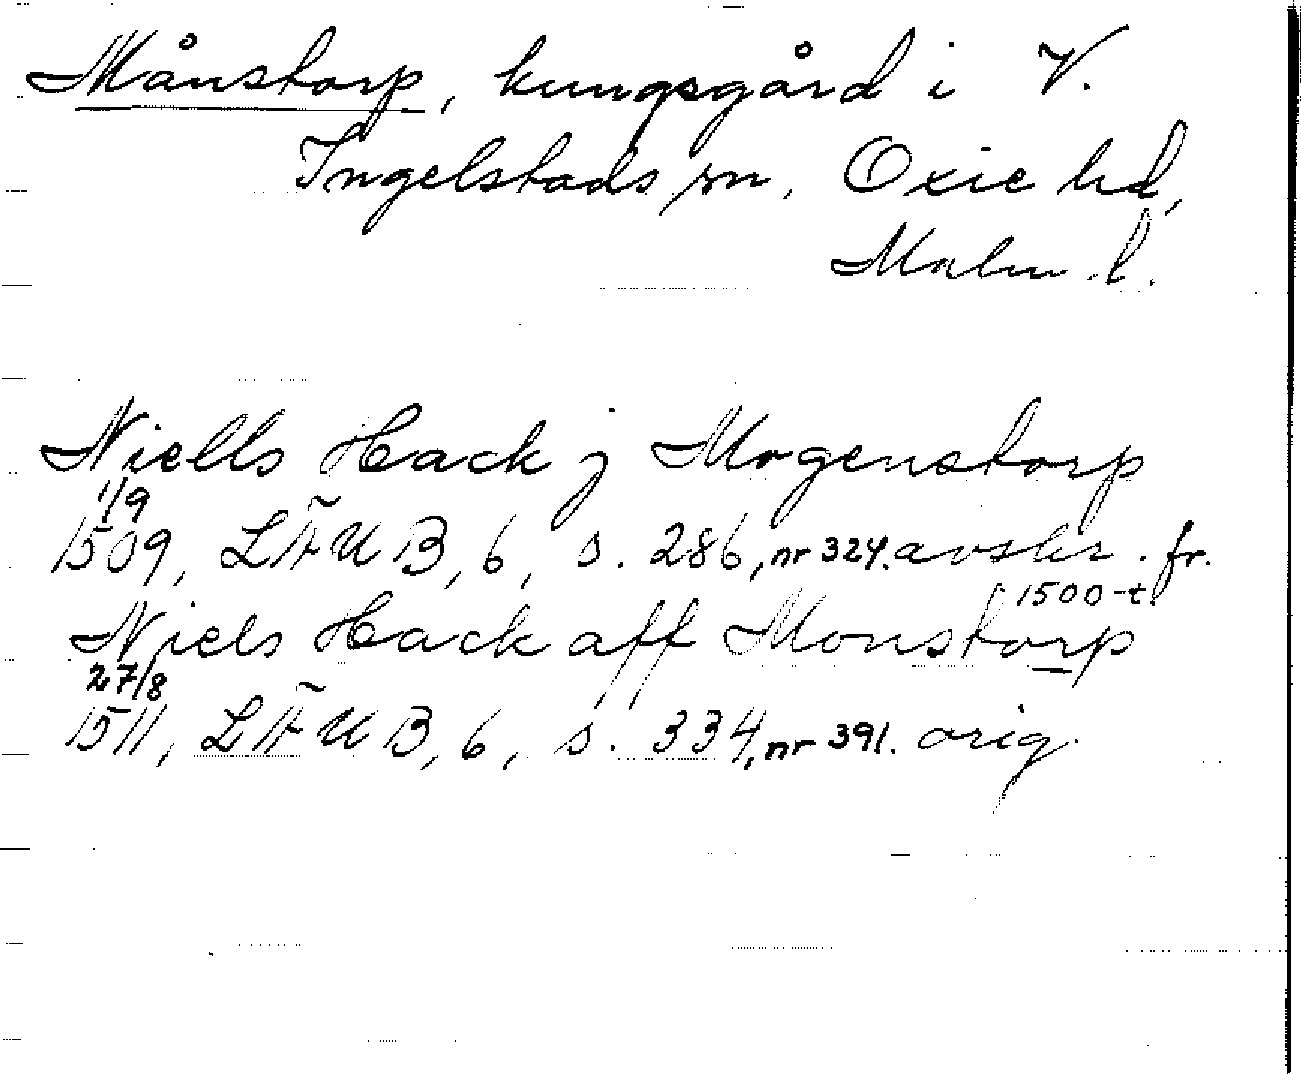 Månstorp, kungsgård i V.
Ingelstads sn, Oxie hd,
Malm. l.
Niells Hack j Mogenstorp
1/9
1509, LÄUB, 6, s. 286, nr 324. avskr. fr.
1500-t.
Niels Hack aff Monstorp
27/8
1511, LÄUB, 6, s. 334, nr 391. orig.